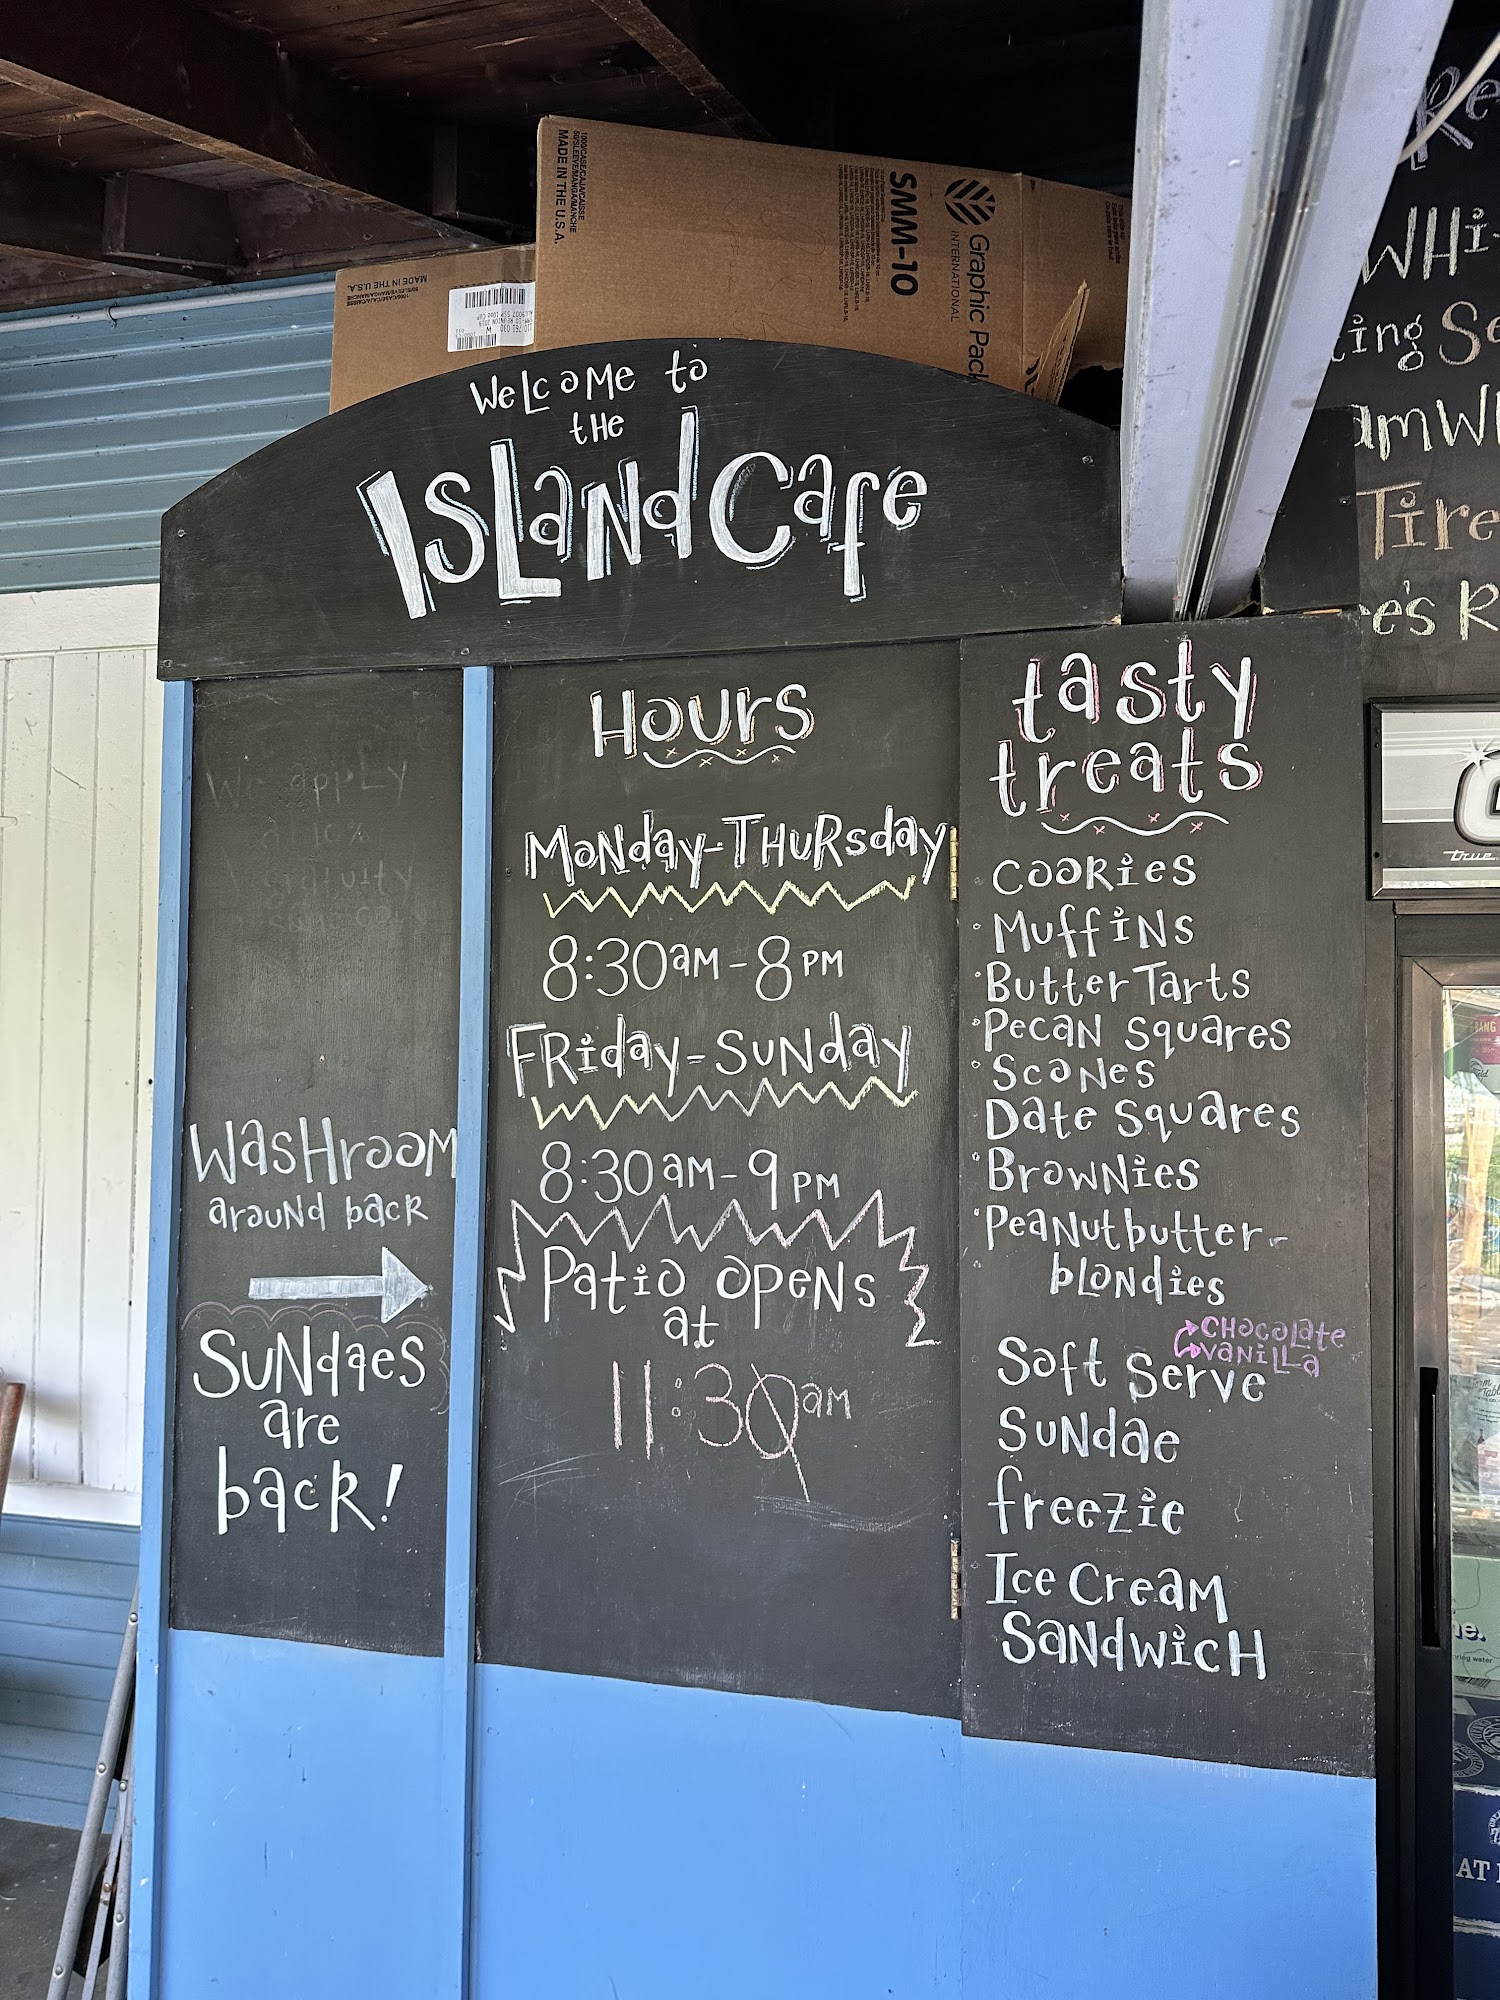 1000/CASE/CAJA/CAISSE
50/SLEEVE/MANGA/MANCHE
MADE IN THE U.S.A.
SMM-10
Graphic Pack
INTERNATIONAL
MADE IN THE U.S.A.
Welcome to
the
Island Cafe
We apply
Washroom
around back
Sundaes
are
back!
Hours
Monday-Thursday
8:30am-8pm
Friday-Sunday
8:30am-9pm
Patio opens
at
11:30am
tasty
treats
Cookies
Muffins
Butter Tarts
Pecan Squares
Scones
Date Squares
Brownies
Peanutbutter-
blondies
Chocolate
Vanilla
Soft Serve
Sundae
freezie
Ice Cream
Sandwich
Re
Whi
ing Se
am Wh
Tire
ee's R
true
AT